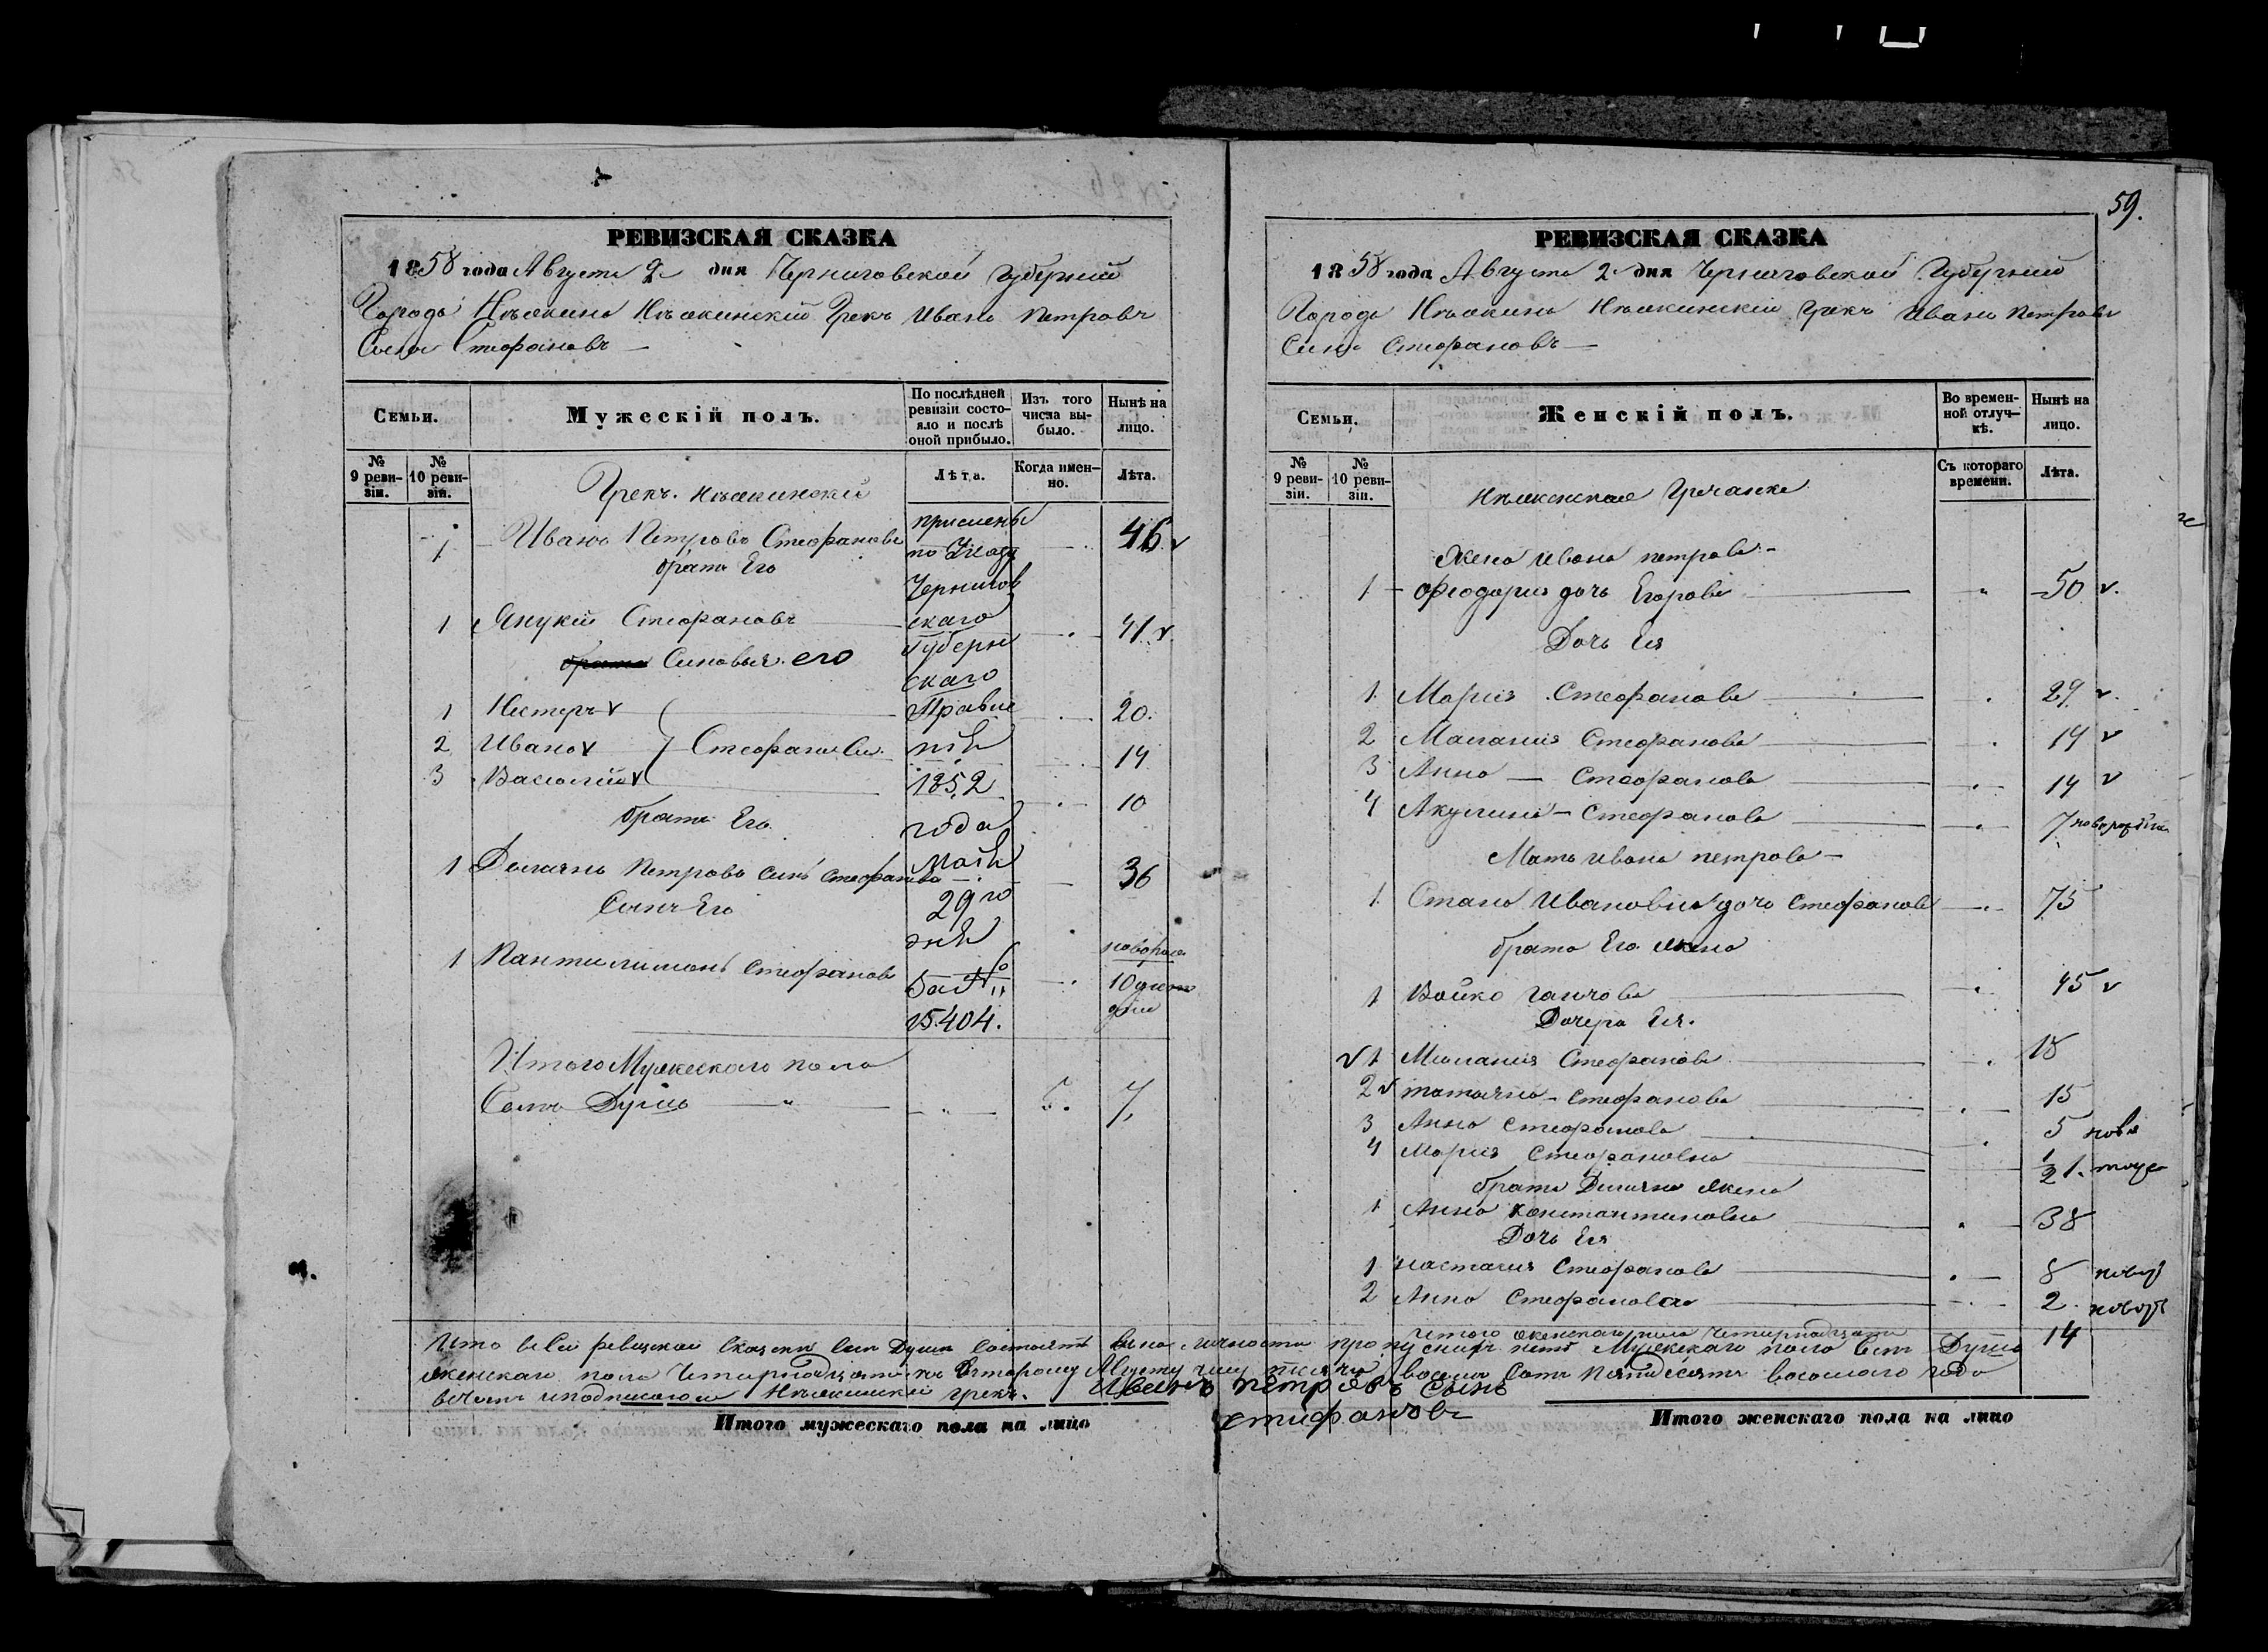 59.
РЕВИЗСКАЯ СКАЗКА
1858 года Августа 2 дня Черниговской Губернии
Города Нѣжина Нѣжинский Грекъ Иванъ Петровъ
Сынъ Стефановъ
Семьи.
Мужескій полъ.
По послѣдней ревизіи состояло и послѣ оной прибыло.
Изъ того числа выбыло.
Нынѣ на лицо.
№ 9 ревизіи.
№ 10 ревизіи.
Лѣта.
Когда именно.
Лѣта.
Грекъ Нѣжинский
1 Иванъ Петровъ Стефановъ 46
братъ Его
1 Янукий Стефановъ 41
Синовья его
1 Нестеръ 20.
2 Иванъ Стефановы 14
3 Василий 10
братъ Его
1 Петровъ синъ Стефановъ 36
Сынъ Его
1 Пантилимонъ Стефановъ 10
по Указу
Чернигов
скаго
Губерн
скаго
Правле
нія
1852
года
Маія
29го
дня
за №
15.404.
Итого Мужескаго пола
Семь Душъ 7,
Итого мужескаго пола на лицо
РЕВИЗСКАЯ СКАЗКА
1858 года Августа 2 дня Черниговской Губернии
Города Нѣжина Нѣжинский Грекъ Иванъ Петровъ
Синъ Стефановъ
Семьи.
Женскій полъ.
Во временной отлучкѣ.
Нынѣ на лицо.
№ 9 ревизіи.
№ 10 ревизіи.
Съ котораго времени.
Лѣта.
Жена Ивана петрова
1 Феодория дочь Егорова 50
Дочь Ея
1 Мария Стефанова 29
2 Мелания Стефанова 19
3 Анна Стефанова 14
4 Акулина Стефанова 7
Мать Ивана петрова
1 Стана Ивановна дочь Стефанова 75
брата Его жена
1 Войко 45
Дочера Ея.
1 Мелания Стефанова 18
2 татияна Стефанова 15
3 Анна Стефанова 5 нова
4 Мария Стефановна 1/2
брата жена
1 Анна Константиновна 38
Дочь Ея
1 настасия Стефанова 8
2 Анна Стефанова 2
итого женскаго пола четирнадцать Душъ 14
Что в сей ревизской сказки Душъ состоятъ на личности пропускихъ нетъ Мужескаго пола Семь
женскаго пола Четирнадцать къ второму Августу тисяча восемъ сотъ пятдесятъ восмаго года
в чемъ и подписался Нѣжинский грекъ. Иванъ петровъ сынъ
стифановъ
Итого женскаго пола на лицо